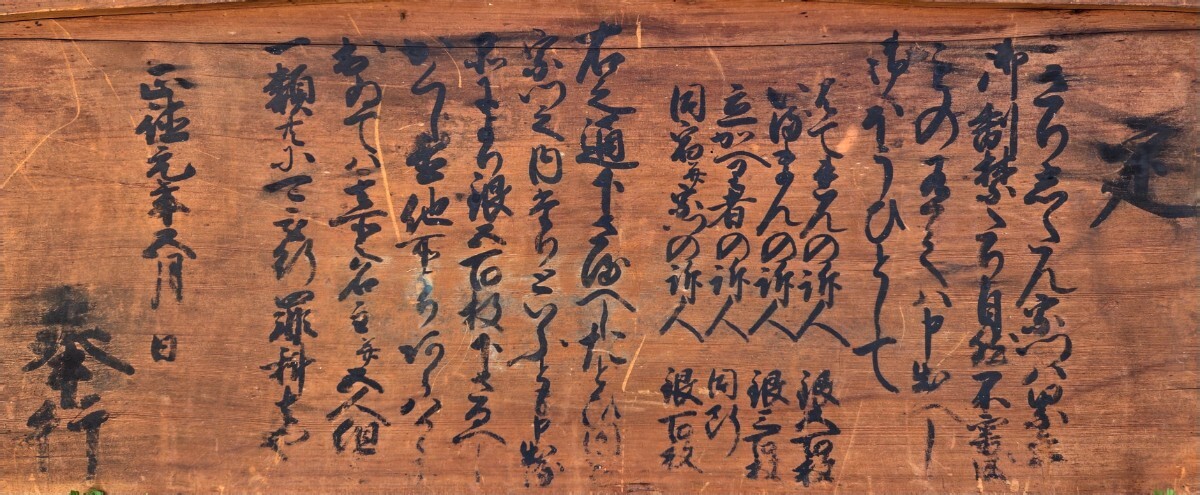 定
一きりしたん宗門ハ累年
御制禁たり自然不審成
もの有之ハ申出へし
御ほうひとして
はてれんの訴人 銀五百枚
いるまんの訴人 銀三百枚
立かへり者の訴人 同断
同宿并宗門の訴人 銀百枚
右之通下さるへしたとひ同宿
宗門之内たりといふとも申出る
品により銀五百枚下さるへし
かくし置他所よりあらはるゝに
おゐてハ其所之名主并五人組
一類共ニ可被行罪科者也
正徳元年五月 日
奉行